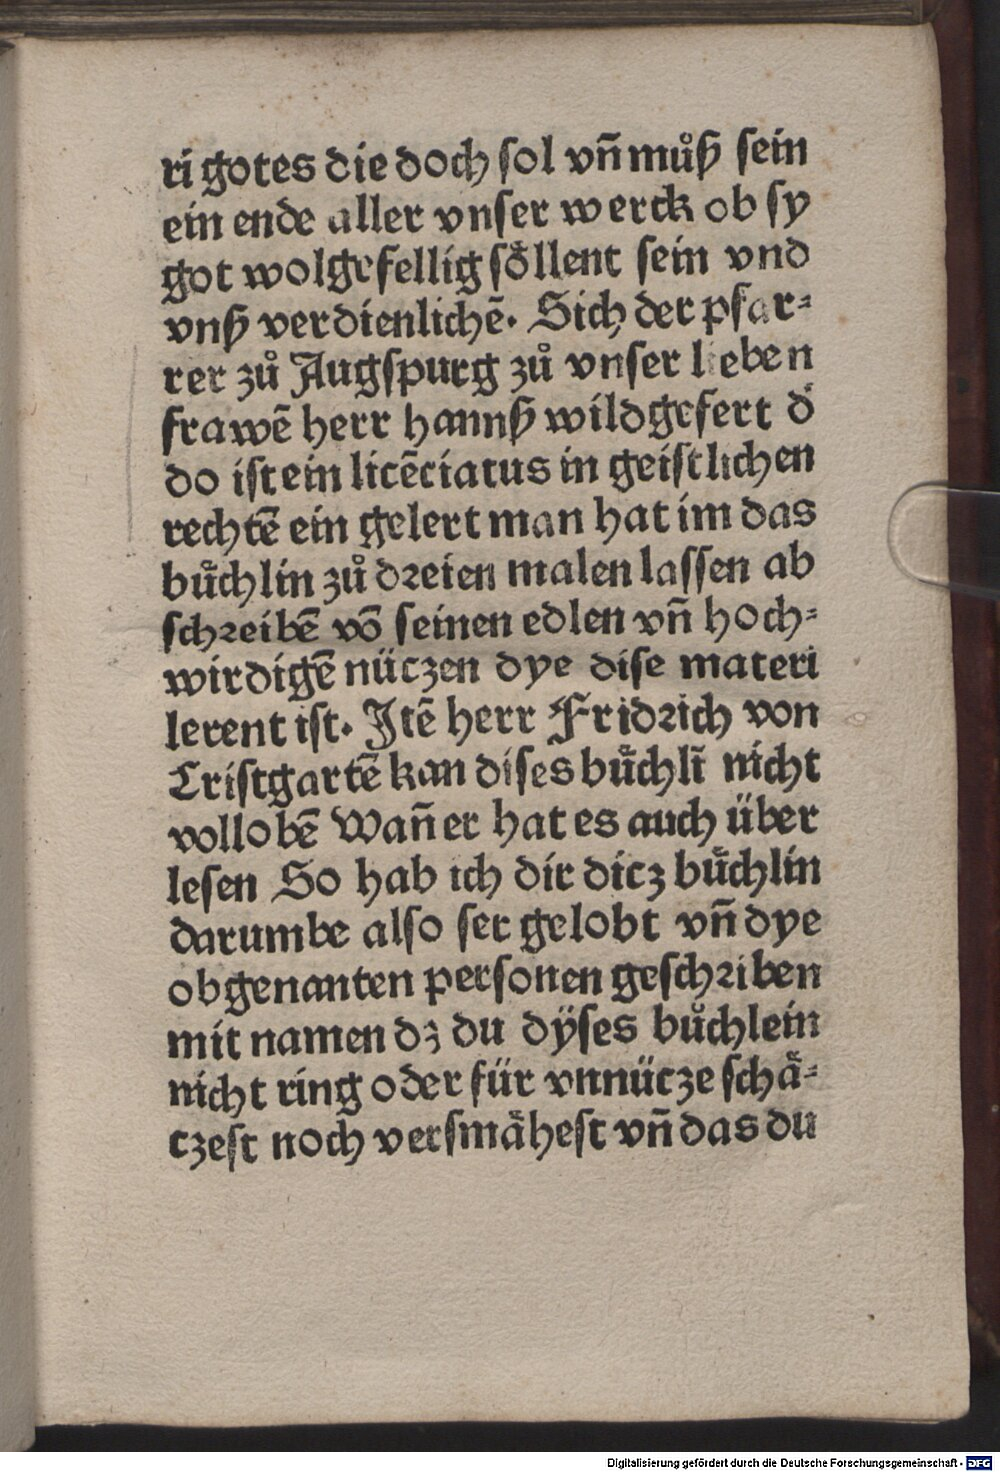 ri gotes die doch sol vñ můß sein
ein ende aller vnser werck ob sy
got wolgefellig soͤllent sein vnd
vnß verdienlichē. Sich der pfar⸗
rer zů Augspurg zů vnser lieben
frawē herr hannß wildgefert dͤ
do ist ein licēciatus in geistlichen
rechtē ein gelert man hat im das
buͤchlin zů dreien malen lassen ab
schreibē vō seinen edlen vñ hoch⸗
wirdigē nüczen dye dise materi
lerent ist. Itē herr Fridrich von
Cristgartē kan dises buͤchlī nicht
vollobē Wañ er hat es auch über
lesen So hab ich dir dicz buͤchlin
darumbe also ser gelobt vñ dye
obgenanten personen geschriben
mit namen dz du dÿses bůchlein
nicht ring oder für vnnücze schaͤ⸗
czest noch versmaͤhest vñ das du
Digitalisierung gefördert durch die Deutsche Forschungsgemeinschaft - DFG